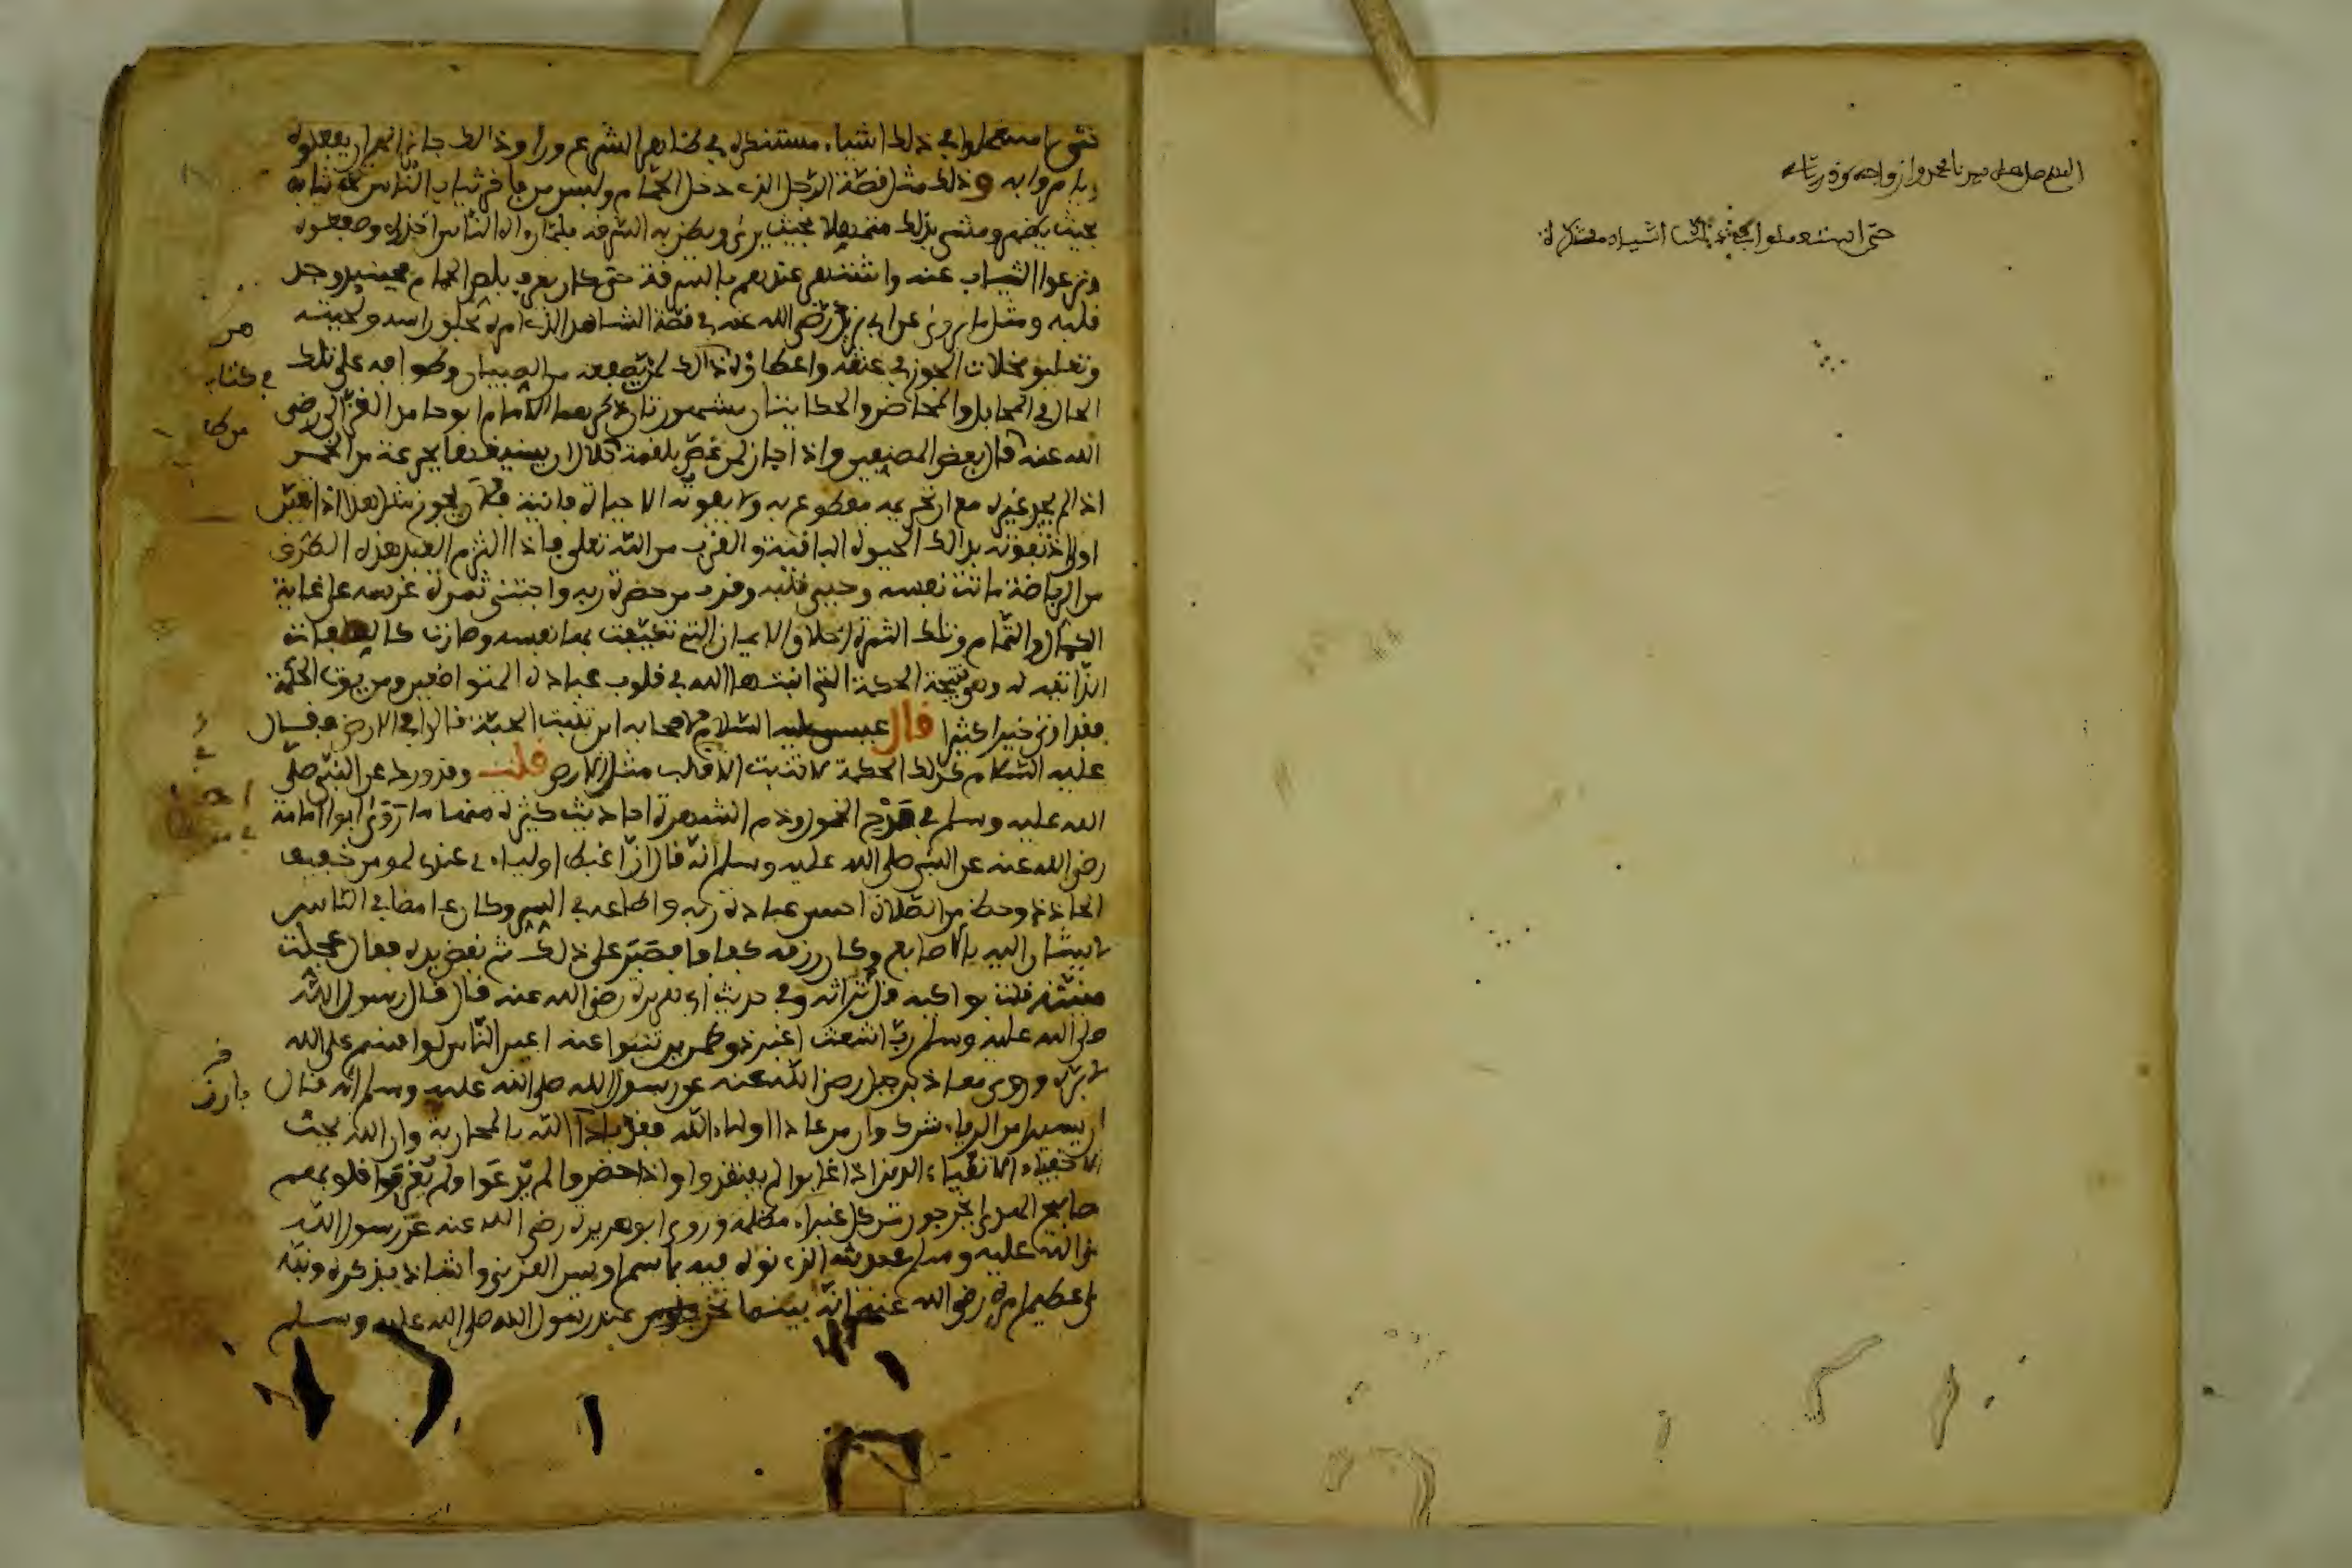 اللهم صل على سيدنا محمد وازواجه وذرياته
حتى استعملوا في ذلك اشياء مستنكرة
حتى استعملوا في ذلك اشياء مستنكرة في ظاهر الشرع وراوا ذالك جائزا لهم ان يفعلوه
ويامروا به وذلك مثل قصة الرجل الذي دخل الحمام ولبس من فاخر ثياب الناس تحت ثيابه
بحيث يظهر ومشى بذلك متمهلا بحيث يرى ويظن به السرقة فلما رءاه الناس اخذوه وصفعوه
ونزعوا الثياب عنه واشتهر عندهم بالسرقة حتى كان يعرف بلص الحمام فحينئذ وجد
قلبه ومثل ما روي عن ابي يزيد رضي الله عنه في قصة الشاهد الذي امره بحلق راسه ولحيته
وتعليق مخلاة الجوز في عنقه واعطاؤه ذالك لمن يصفعه من الصبيان وطوافه على تلك
الحال في المحافل والمحاضر والحكايتان مشهورتان ذكرهما الامام ابو حامد الغزالي رضي
الله عنه قال بعض المصنفين واذا جاز لمن غص بلقمة حلال ان يسيغها بجرعة من الخمر
اذا لم يجد غيره مع ان تحريمه مقطوع به ولا يفوته الا حياة فانية فلان يجوز مثل هذا اذا تعين
اولى اذ تفوته بذالك الحيوة الباقية والقرب من الله تعلى فاذا التزم العبد هذه الطرق
من الرياضة ماتت نفسه وحيي قلبه وقرب من حضرة ربه واجتنى ثمرة غرسه على غاية
الكمال والتمام وتلك الثمرة اخلاق الايمان التي تكيفت بها نفسه وصارت كالصفات
الذاتية له وهي نتيجة الحكمة التي انبتها الله في قلوب عباده المتواضعين ومن يوت الحكمة
فقد اوتي خيرا كثيرا قال عيسى عليه السلام لاصحابه اين تنبت الحبة قالوا في الارض فقال
عليه السلام كذلك الحكمة لا تنبت الا في قلب مثل الارض قلت وقد ورد عن النبي صلى
الله عليه وسلم في مدح الخمول وذم الشهرة احاديث كثيرة منها ما روى ابو امامة
رضي الله عنه عن النبي صلى الله عليه وسلم انه قال ان اغبط اوليائي عندي لمومن خفيف
الحاذ ذو حظ من الصلاة احسن عبادة ربه واطاعه في السر وكان غامضا في الناس
لا يشار اليه بالاصابع وكان رزقه كفافا فصبر على ذلك ثم نفض يده فقال عجلت
منيته قلت بواكيه قل تراثه وفي حديث ابي هريرة رضي الله عنه قال قال رسول الله
صلى الله عليه وسلم رب اشعث اغبر ذو طمرين تنبوا عنه اعين الناس لو اقسم على الله
لابره وروى معاذ بن جبل رضي الله عنه عن رسول الله صلى الله عليه وسلم انه قال
ان يسيرا من الرياء شرك وان من عادا اولياء الله فقد بادا الله بالمحاربة وان الله يحب
الاخفياء الاتقياء الذين اذا غابوا لم يفتقدوا واذا حضروا لم يدعوا ولم يعرفوا قلوبهم
مصابيح الهدى يخرجون من كل غبراء مظلمة وروى ابو هريرة رضي الله عنه عن رسول الله
صلى الله عليه وسلم حديثه الذي نوه فيه باسم اويس القرني واشاد بذكره ونبه
على عظيم امره رضي الله عنه انه بينما نحن جلوس عند رسول الله صلى الله عليه وسلم